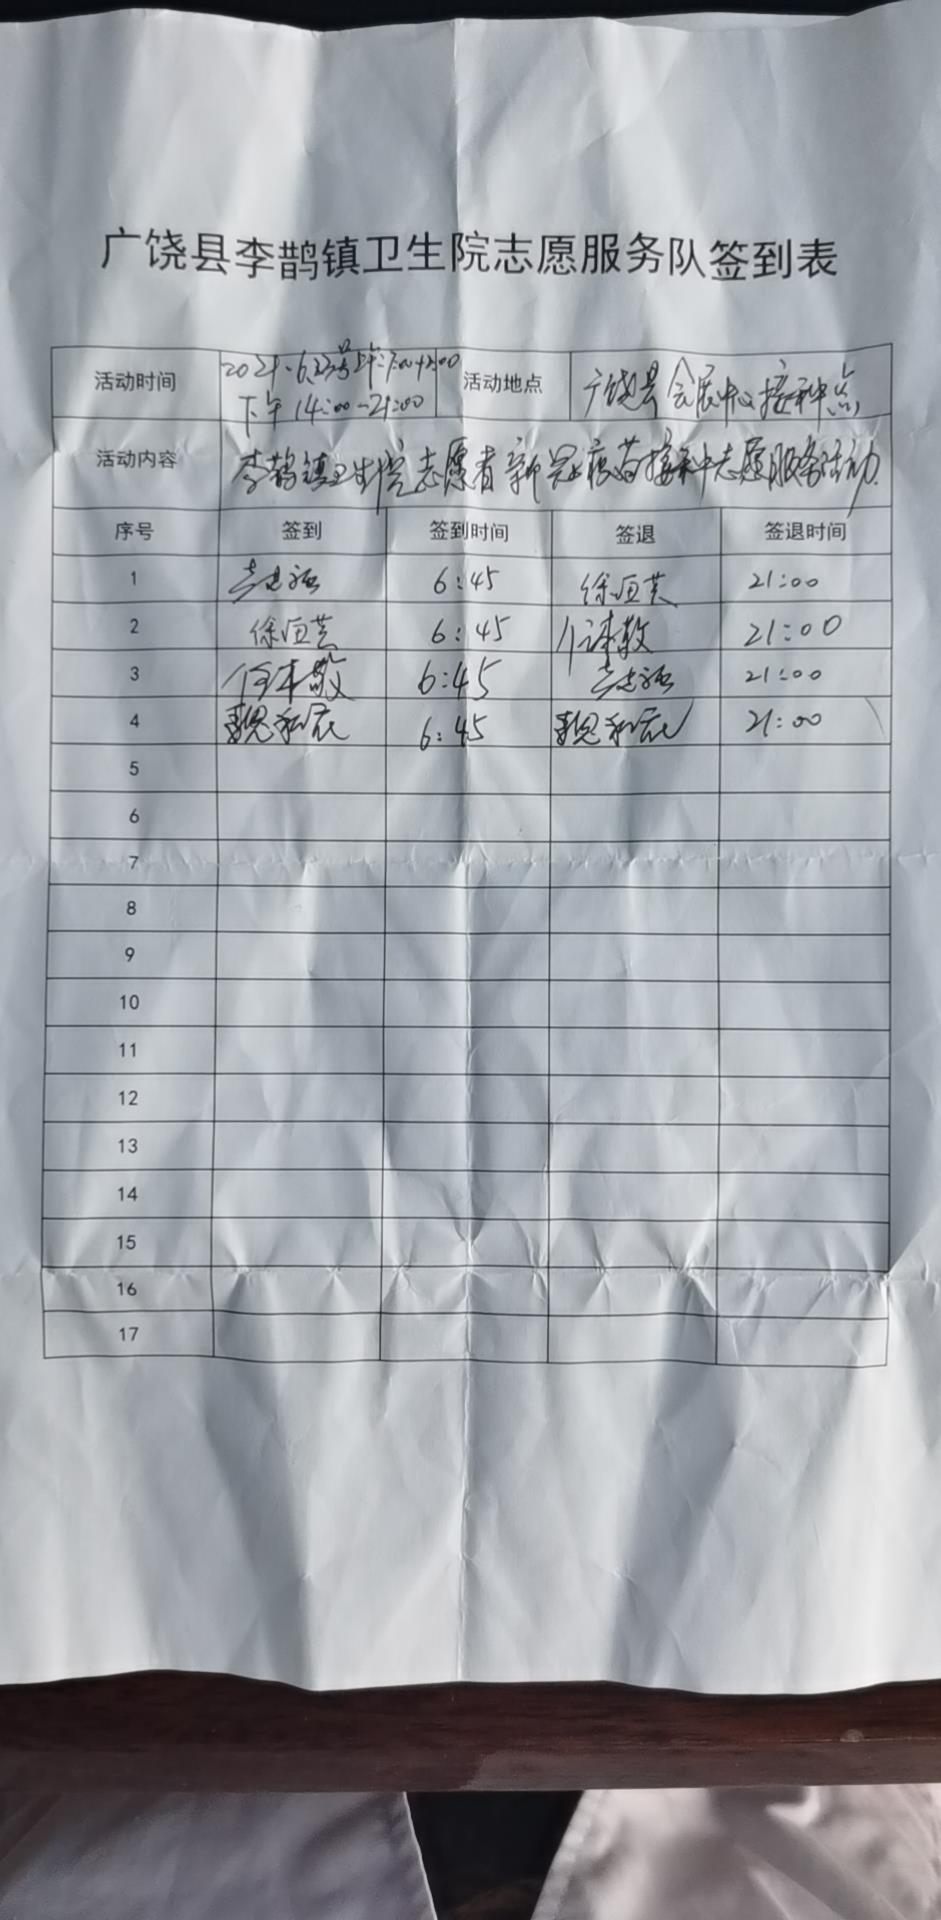 广饶县李鹊镇卫生院志愿服务队签到表
活动时间 2021.6.23号上午:7:00-12:00 活动地点 广饶县会展中心接种点
下午14:00-21:00
活动内容 李鹊镇卫生院志愿者新冠疫苗接种志愿服务活动.
序号 签到 签到时间 签退 签退时间
1 6:45 徐 21:00
2 徐 6:45 21:00
3 何本敬 6:45 21:00
4 6:45 21:00
5
6
7
8
9
10
11
12
13
14
15
16
17